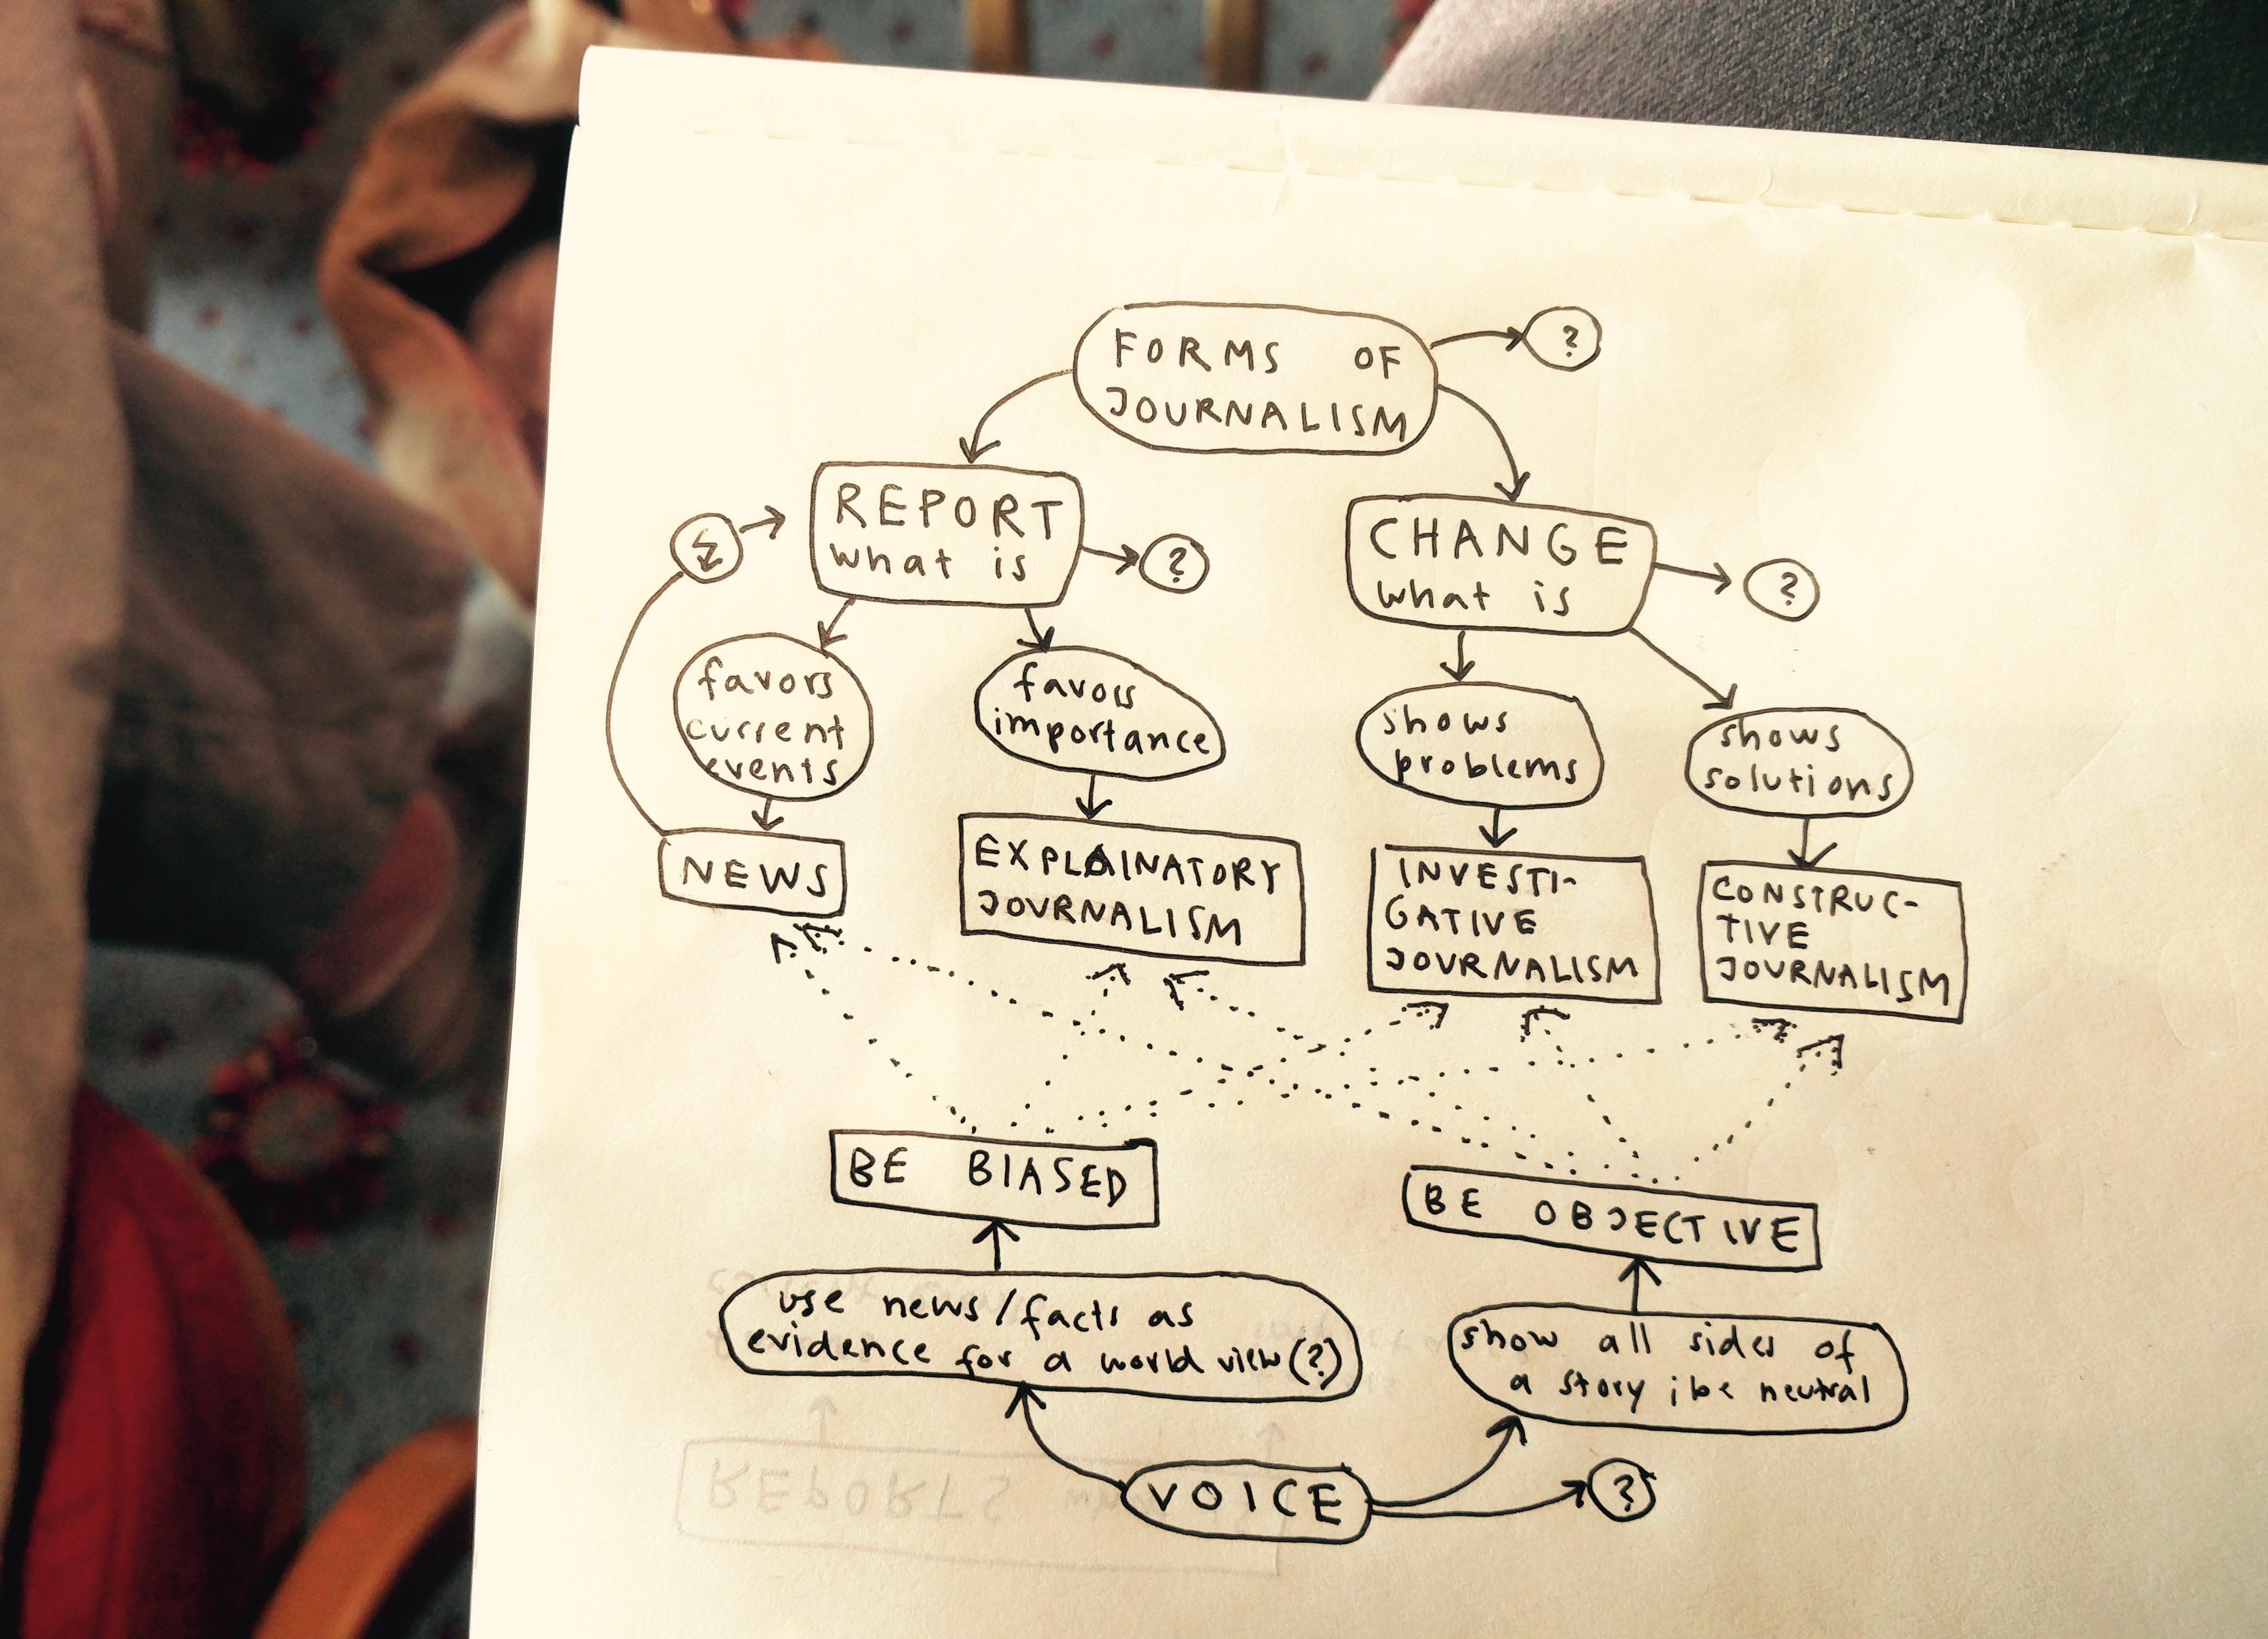 FORMS OF
JOURNALISM
?
REPORT
what is
?
CHANGE
what is
?
favors
current
events
favors
importance
shows
problems
shows
solutions
NEWS
EXPLAINATORY
JOURNALISM
INVESTI-
GATIVE
JOURNALISM
CONSTRUC-
TIVE
JOURNALISM
BE BIASED
BE OBJECTIVE
use news/facts as
evidence for a world view(?)
show all sides of
a story ; be neutral
VOICE
?
REPORTS